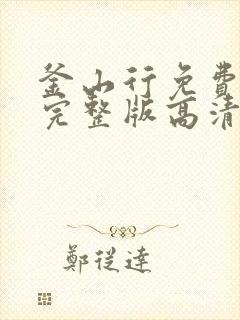 釜山行免費
完整版高清
鄭從達